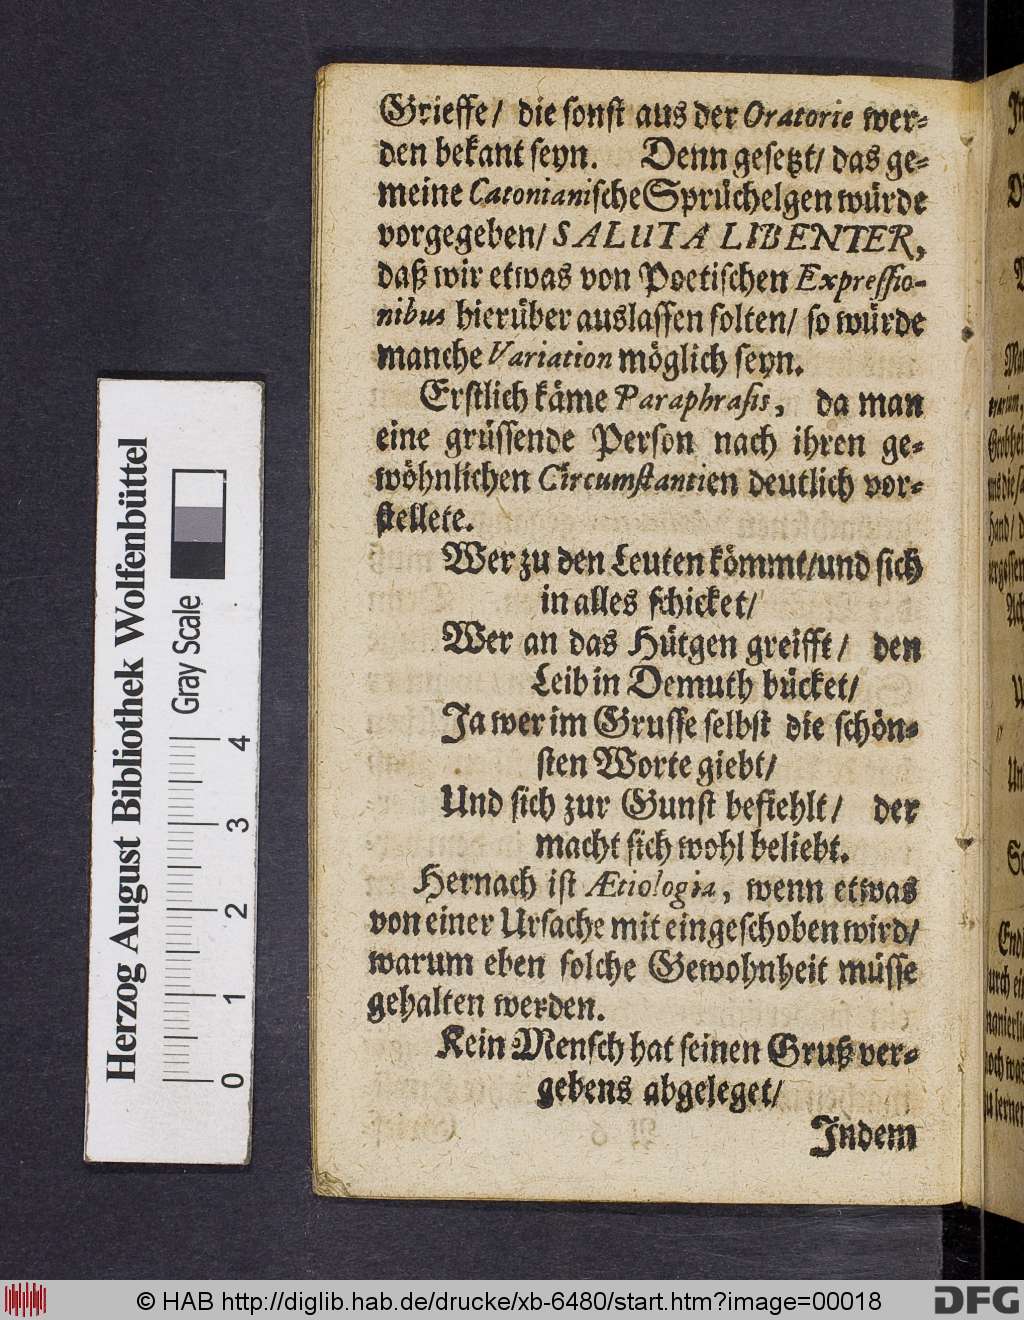 Grieffe/ die sonst aus der Oratorie wer-
den bekant seyn. Denn gesetzt/ das ge-
meine Catonianische Sprüchelgen würde
vorgegeben/ SALUTA LIBENTER,
daß wir etwas von Poetischen Expressio-
nibus hierüber auslassen solten/ so würde
manche Variation möglich seyn.
Erstlich käme Paraphrasis, da man
eine grüssende Person nach ihren ge-
wöhnlichen Circumstantien deutlich vor-
stellete.
Wer zu den Leuten kömmt/und sich
in alles schicket/
Wer an das Hütgen greifft/ den
Leib in Demuth bücket/
Ja wer im Grusse selbst die schön-
sten Worte giebt/
Und sich zur Gunst befiehlt/ der
macht sich wohl beliebt.
Hernach ist Ætiologia, wenn etwas
von einer Ursache mit eingeschoben wird/
warum eben solche Gewohnheit müsse
gehalten werden.
Kein Mensch hat seinen Gruß ver-
gebens abgeleget/
Indem
Herzog August Bibliothek Wolfenbüttel
Gray Scale
0 1 2 3 4
© HAB http://diglib.hab.de/drucke/xb-6480/start.htm?image=00018
DFG